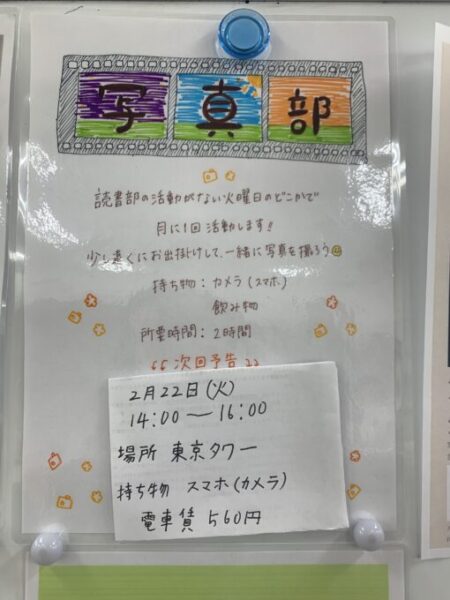 写真部
読書部の活動がない火曜日のどこかで
月に1回活動します!!
少し遠くにお出掛けして、一緒に写真を撮ろう
持ち物：カメラ(スマホ)
飲み物
所要時間：2時間
次回予告
2月22日(火)
14:00〜16:00
場所 東京タワー
持ち物 スマホ(カメラ)
電車賃 560円